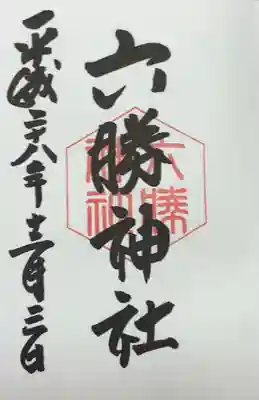 六勝神社
平成二十八年十二月三日
六勝神社